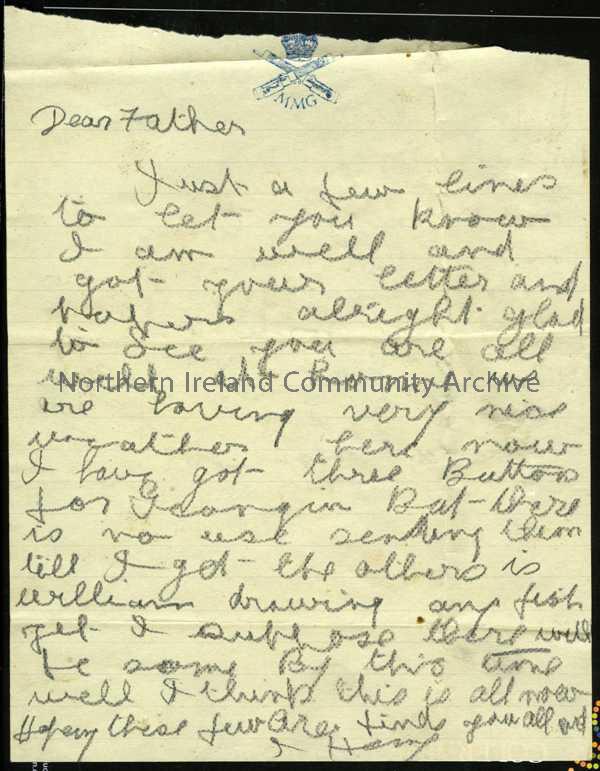 MMG
Dear Father
Just a few lines
to let you know
I am well and
got your letter and
papers alright glad
to see you are all
well at home we
Northern Ireland Community Archive
are having very nice
weather here now
I have got three Buttons
for But there
is no use sending them
till I get the others is
William drawing any fish
yet I suppose there will
be some by this time
well I think this is all now
Hoping these few are find you all